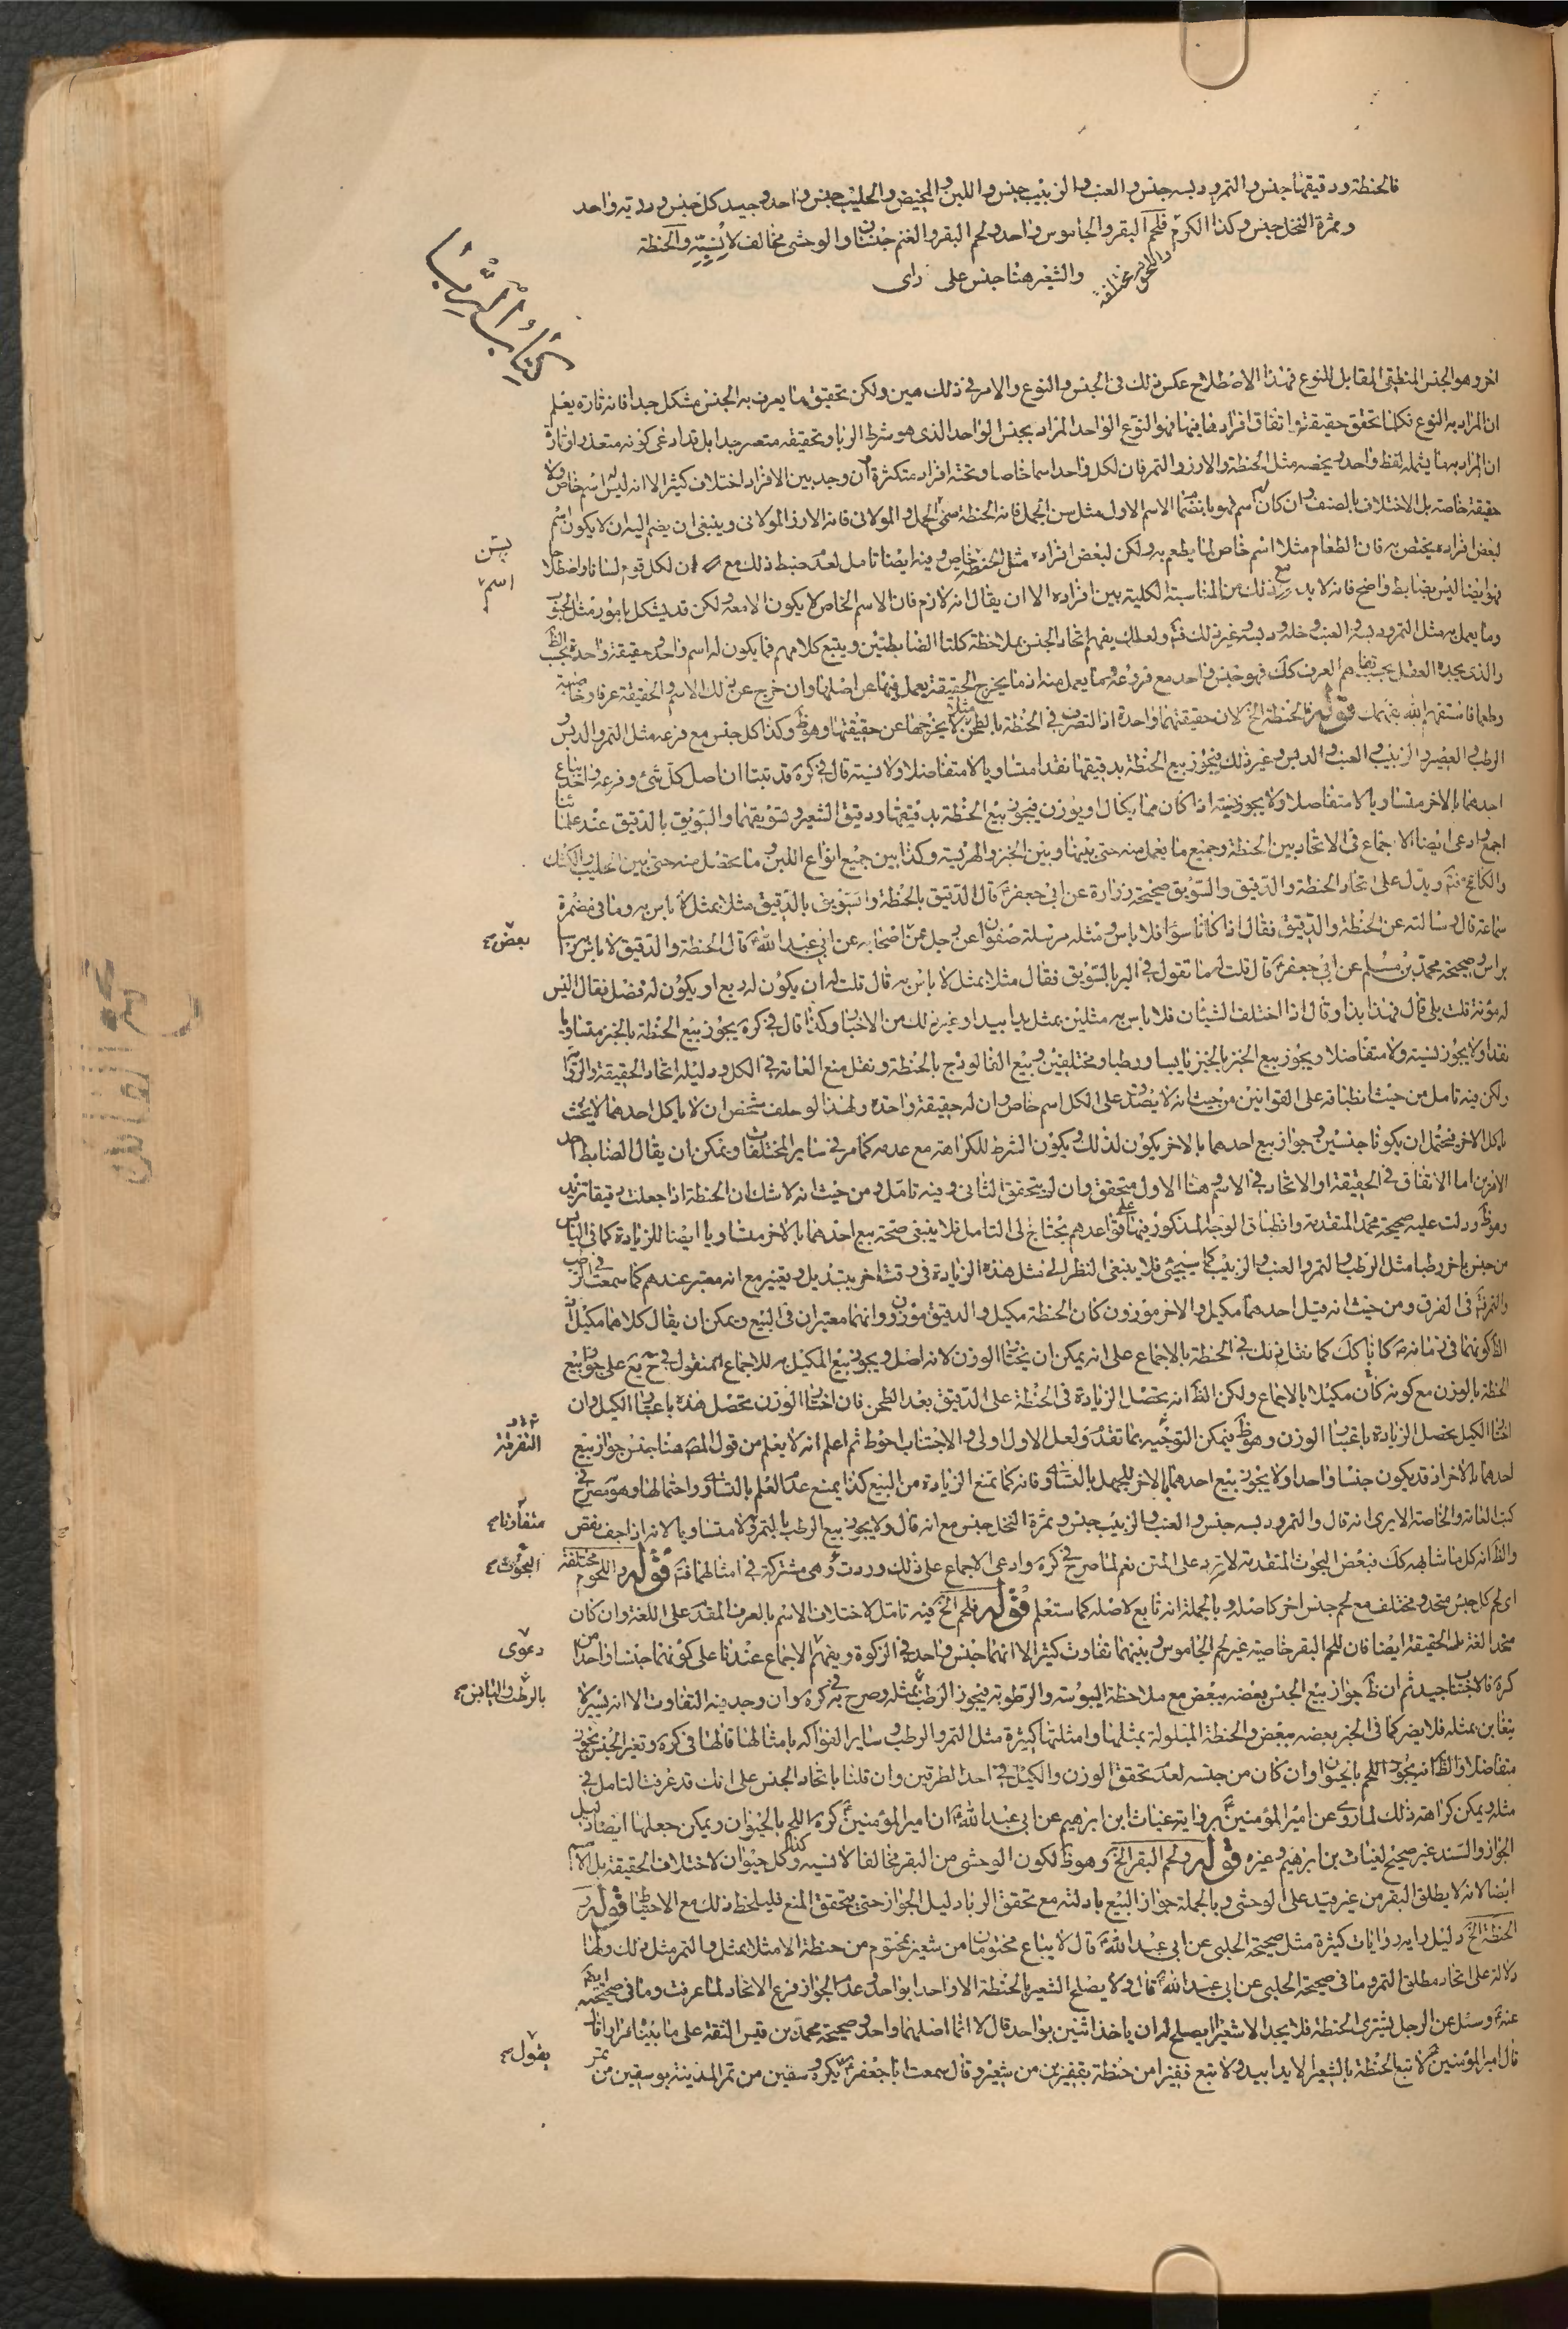 فالحنطة ودقيقها جنس والتمر ودبسه جنس والعنب والزبيب جنس واللبن والمخيض والحليب جنس واحد وجيد كل جنس ورديه واحد
وثمرة النخل جنس وكذا الكرم فلحم البقر والجاموس واحد ولحم البقر والغنم جنسان والوحشى مخالف لانسيّه والحنطة
والشعير هنا جنس على راى
واللحوم مختلفة
كتاب الربا
اخر وهو الجنس المنطقى المقابل للنوع فهذا الاصطلاح عكس ذلك فى الجنس والنوع والامر فى ذلك هين ولكن تحقيق ما يعرف به الجنس مشكل جدا فانه تارة يعلم
ان المراد به النوع فكلما تحقق حقيقته واتفاق افراد فيها فهو النوع الواحد المراد بجنس الواحد الذى هو شرط الربا وتحقيقه متعسر جدا بل قد ادعى كونه متعذرا وتارة
ان المراد به ما يشمله لفظ واحد ويخصه مثل الحنطة والارز والتمر فان لكل واحد اسما خاصا وتحته افراد متكثرة وان وجد بين الافراد اختلاف كثير الا انه ليس له اسم خاص ولا
حقيقة خاصة بل الاختلاف بالصنف وان كان له اسم فهو بانضمام الاسم الاول مثل سن الجمل فانه الحنطة سن الجمل والمولانى فانه الارز المولانى وينبغى ان يضم اليه ان لا يكون اسم
لبعض افراده يختص به فان الطعام مثلا اسم خاص لما يطعم به ولكن لبعض افراده مثل الحنطة خاص وفيه ايضا تامل لعدم ضبط ذلك مع ان لكل قوم لسانا واصطلاحا
فهو ايضا ليس بضابط واضح فانه لا بد مع ذلك من المناسبة الكلية بين افراده الا ان يقال انه لازم فان الاسم الخاص لا يكون الا معه ولكن قد يشكل بامور مثل الحبوب
وما يعمل به مثل التمر ودبسه والعنب وخله ودبسه وغير ذلك فتم ولعلك يفهم اتحاد الجنس بملاحظة كلتا الضابطتين ويتبع كلامهم فما يكون له اسم واحد وحقيقة واحدة بحسب الظ
والذى يجده العقل بحسب تفاهم العرف كك فهو جنس واحد مع فروعه وما يعمل منه اذ ما يخرج الحقيقة بعمل فيها عن اصلها وان خرج عن ذلك الاسم والحقيقة عرفا وخاصية
وطعما فاستفهم الله يفهمك قوله فالحنطة الخ لان حقيقتهما واحدة اذ التصرف فى الحنطة بالطحن مثلا لا يخرجها عن حقيقتها وهو ظ وكذا كل جنس مع فرعه مثل التمر والدبس
الرطب والعصير والزبيب والعنب والدبس وغير ذلك فيجوز بيع الحنطة بدقيقها نقدا متساويا لا متفاضلا ولا نسية قال فى كره قد بينا ان اصل كل شئ وفرعه واحد يباع
احدهما بالاخر متساويا لا متفاضلا ولا يجوز نسية اذا كان مما يكال او يوزن فيجوز بيع الحنطة بدقيقها ودقيق الشعير وسويقهما والسويق بالدقيق عند علمائنا
اجمع وادعى ايضا الاجماع فى الاتحاد بين الحنطة وجميع ما يعمل منه حتى بينها وبين الخبز والهريسة وكذا بين جميع انواع اللبن وما يحصل منه حتى بين الحليب والكشك
والكامخ فتم ويدل على اتحاد الحنطة والدقيق والسويق صحيحة زرارة عن ابى جعفر ع قال الدقيق بالحنطة والسويق بالدقيق مثلا بمثل لا باس به وما فى مضمرة
سماعة قال وسالته عن الحنطة والدقيق فقال اذا كانا سواء فلا باس ومثله مرسلة صفوان عن رجل من اصحابه عن ابى عبد الله ع قال الحنطة والدقيق لا باس راسا
براس وصحيحة محمد بن مسلم عن ابى جعفر ع قال قلت له ما تقول فى البر بالسويق فقال مثلا بمثل لا باس به قال قلت له ان يكون له ريع او يكون له فضل فقال اليس
له مؤنة قلت بلى قال فهذا بذا وقال اذا اختلف الشيئان فلا باس به مثلين بمثل يدا بيد وغير ذلك من الاخبار وكذا قال فى كره يجوز بيع الحنطة بالخبز متساويا
نقدا ولا يجوز نسية ولا متفاضلا ويجوز بيع الخبز بالخبز يابسا ورطبا ومختلفين وبيع الفالوذج بالحنطة ونقل منع العامة فى الكل ودليله اتحاد الحقيقة والروايا
ولكن فيه تامل من حيث انطباقه على القوانين من حيث انه لا يصدق على الكل اسم خاص وان له حقيقة واحدة ولهذا لو حلف شخص ان لا ياكل احدهما لا يحنث
باكل الاخر فيحتمل ان يكونا جنسين وجواز بيع احدهما بالاخر يكون لذلك ويكون الشرط للكراهة مع عدمه كما مر فى ساير المختلفات ويمكن ان يقال الضابط احد
الامرين اما الاتفاق فى الحقيقة او الاتحاد فى الاسم وهنا الاول متحقق وان لم يتحقق الثانى وفيه تامل ومن حيث انه لا شك ان الحنطة اذا جعلت دقيقا تزيد
وهو ظ ودلت عليه صحيحة محمد المتقدمة وانطباق الوجه المذكور فيها على قواعدهم يحتاج الى التامل فلا ينبغى صحة بيع احدهما بالاخر متساويا ايضا للزيادة كما فى اليابس
من جنس باخر رطبا مثل الرطب والتمر والعنب والزبيب كما سيجئ فلا ينبغى النظر الى مثل هذه الزيادة فى وقت اخر بتبديل وتغيير مع انه معتبر عندهم كما سمعت فى الرطب
والتمر فتم فى الفرق ومن حيث انه قيل احدهما مكيل والاخر موزون كان الحنطة مكيل والدقيق موزون وانهما معتبران فى البيع ويمكن ان يقال كلاهما مكيلان
لكونهما فى زمانه ص كانا كك كما نقل ذلك فى الحنطة بالاجماع على انه يمكن ان يختار الوزن لانه اصل ويجوز بيع المكيل به للاجماع المنقول فى ح يع على جواز بيع
الحنطة بالوزن مع كونه كان مكيلا بالاجماع ولكن الظ انه تحصل الزيادة فى الحنطة على الدقيق بعد الطحن فان اختار الوزن تحصل هذه باعتبار الكيل وان
اختار الكيل يحصل الزيادة باعتبار الوزن وهو ظ فيمكن التوجيه بما تقدم ولعل الاول اولى والاجتناب احوط ثم اعلم انه لا يعلم من قول المص هنا جنس جواز بيع
احدهما بالاخر اذ قد يكون جنسا واحدا ولا يجوز بيع احدهما بالاخر للجهل بالتساوى فانه كما تمنع الزيادة من البيع كذا يمنع عدم العلم بالتساوى واحتمالها وهو مصرح فى
كتب العامة والخاصة الا يرى انه قال والتمر ودبسه جنس والعنب والزبيب جنس وثمرة النخل جنس مع انه قال ولا يجوز بيع الرطب بالتمر ولا متساويا لانه اذا جف نقص
والظ انه كل ما شابهه كك فبعض البحوث المتقدمة لا يرد على المتن نعم لما صرح فى كره وادعى الاجماع على ذلك وردت وهى مشتركة فى امثالهما فتم قوله واللحوم مختلفة
اى لحم كل جنس متحد ومختلف مع لحم جنس اخر كاصله وبالجملة انه تابع لاصله كما ستعلم قوله فلحم الخ فيه تامل لاختلاف الاسم بالعرف المقدم على اللغة وان كان
متحدا لغة بل الحقيقة ايضا فان للحم البقر خاصية غير لحم الجاموس وبينهما تفاوت كثير الا انهما جنس واحد فى الزكوة ويفهم الاجماع عندنا على كونهما جنسا واحدا من
كره فالاجتناب جيد ثم ان ظ جواز بيع الجنس بعضه ببعض مع ملاحظة اليبوسة والرطوبة فيجوز الرطب بمثله وصرح به فى كره وان وجد فيه التفاوت الا انه يسير لا
يتغابن بمثله فلا يضر كما فى الخبز بعضه ببعض والحنطة المبلولة بمثلها وامثلتها كثيرة مثل التمر والرطب وساير الفواكه بامثالها قالها فى كره وتغير الجنس يجوز
متفاضلا والظ انه يجوز اللحم بالحيوان وان كان من جنسه لعدم تحقق الوزن والكيل فى احد الطرفين وان قلنا باتحاد الجنس على انك قد عرفت التامل فى
مثله ويمكن كراهة ذلك لما روى عن امير المؤمنين ع برواية غياث ابن ابرهيم عن ابى عبد الله ع ان امير المؤمنين ع كره اللحم بالحيوان ويمكن جعلها ايضا دليل
الجواز والسند غير صحيح لغياث بن ابرهيم وغيره قوله ولحم البقر الخ وهو ظ لكون الوحشى من البقر مخالفا لانسيه وكذا كل حيوان لاختلاف الحقيقة بل الاسم
ايضا لانه لا يطلق البقر من غير قيد على الوحشى وبالجملة جواز البيع بادلته مع تحقق الربا دليل الجواز حتى يتحقق المنع فليلحظ ذلك مع الاحتياط قوله
الحنطة الخ دليل رايه روايات كثيرة مثل صحيحة الحلبى عن ابى عبد الله ع قال لا يباع مختومان من شعير بمختوم من حنطة الا مثلا بمثل والتمر مثل ذلك ولها
دلالة على اتحاد مطلق التمر وما فى صحيحة الحلبى عن ابى عبد الله ع قال ولا يصلح الشعير بالحنطة الا واحدا بواحد وعدم الجواز فرع الاتحاد لما عرفت وما فى صحيحته ايضا
عنه ع وسئل عن الرجل يشترى الحنطة فلا يجد الا شعيرا ايصلح له ان ياخذ اثنين بواحد قال لا انما اصلهما واحد وصحيحة محمد بن قيس الثقة على ما بيناه مرارا قال
قال امير المؤمنين ع لا تبع الحنطة بالشعير الا يدا بيد ولا تبع قفيزا من حنطة بقفيزين من شعير وقال سمعت ابا جعفر ع يكره وسقين من تمر المدينة بوسقين من تمر
اسم
بعض
التفرقة
متفاوتا
البحوث
دعوى
بالرطب واليابس
يقول